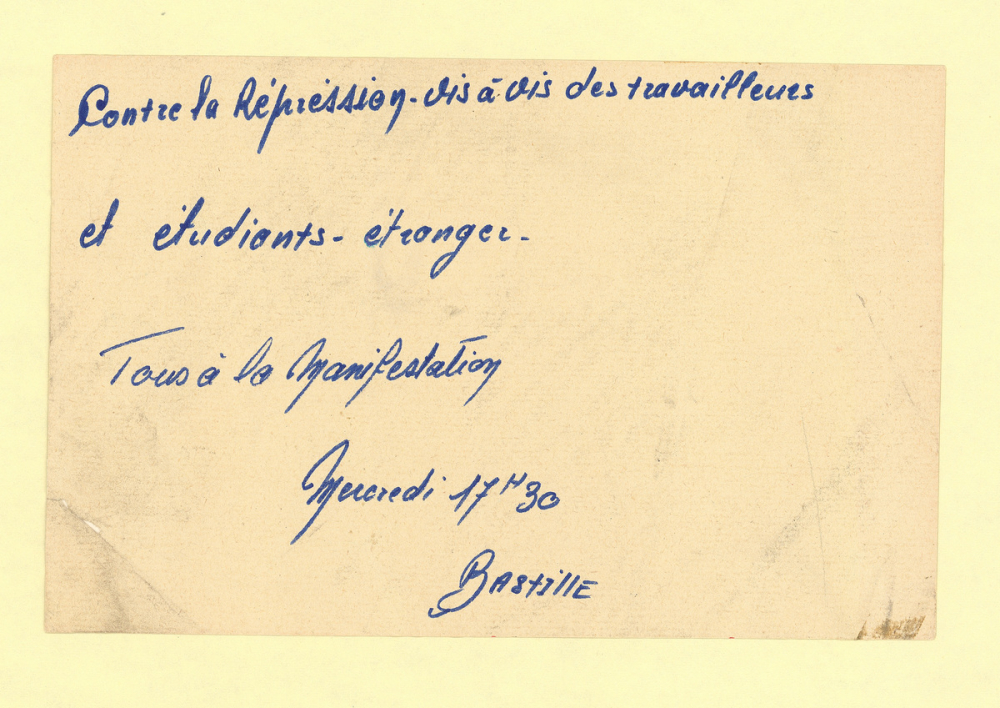 Contre la Répression-vis à vis des travailleurs
et étudiants- étranger-
Tous à la Manifestation
Mercredi 17H30
BAstillE